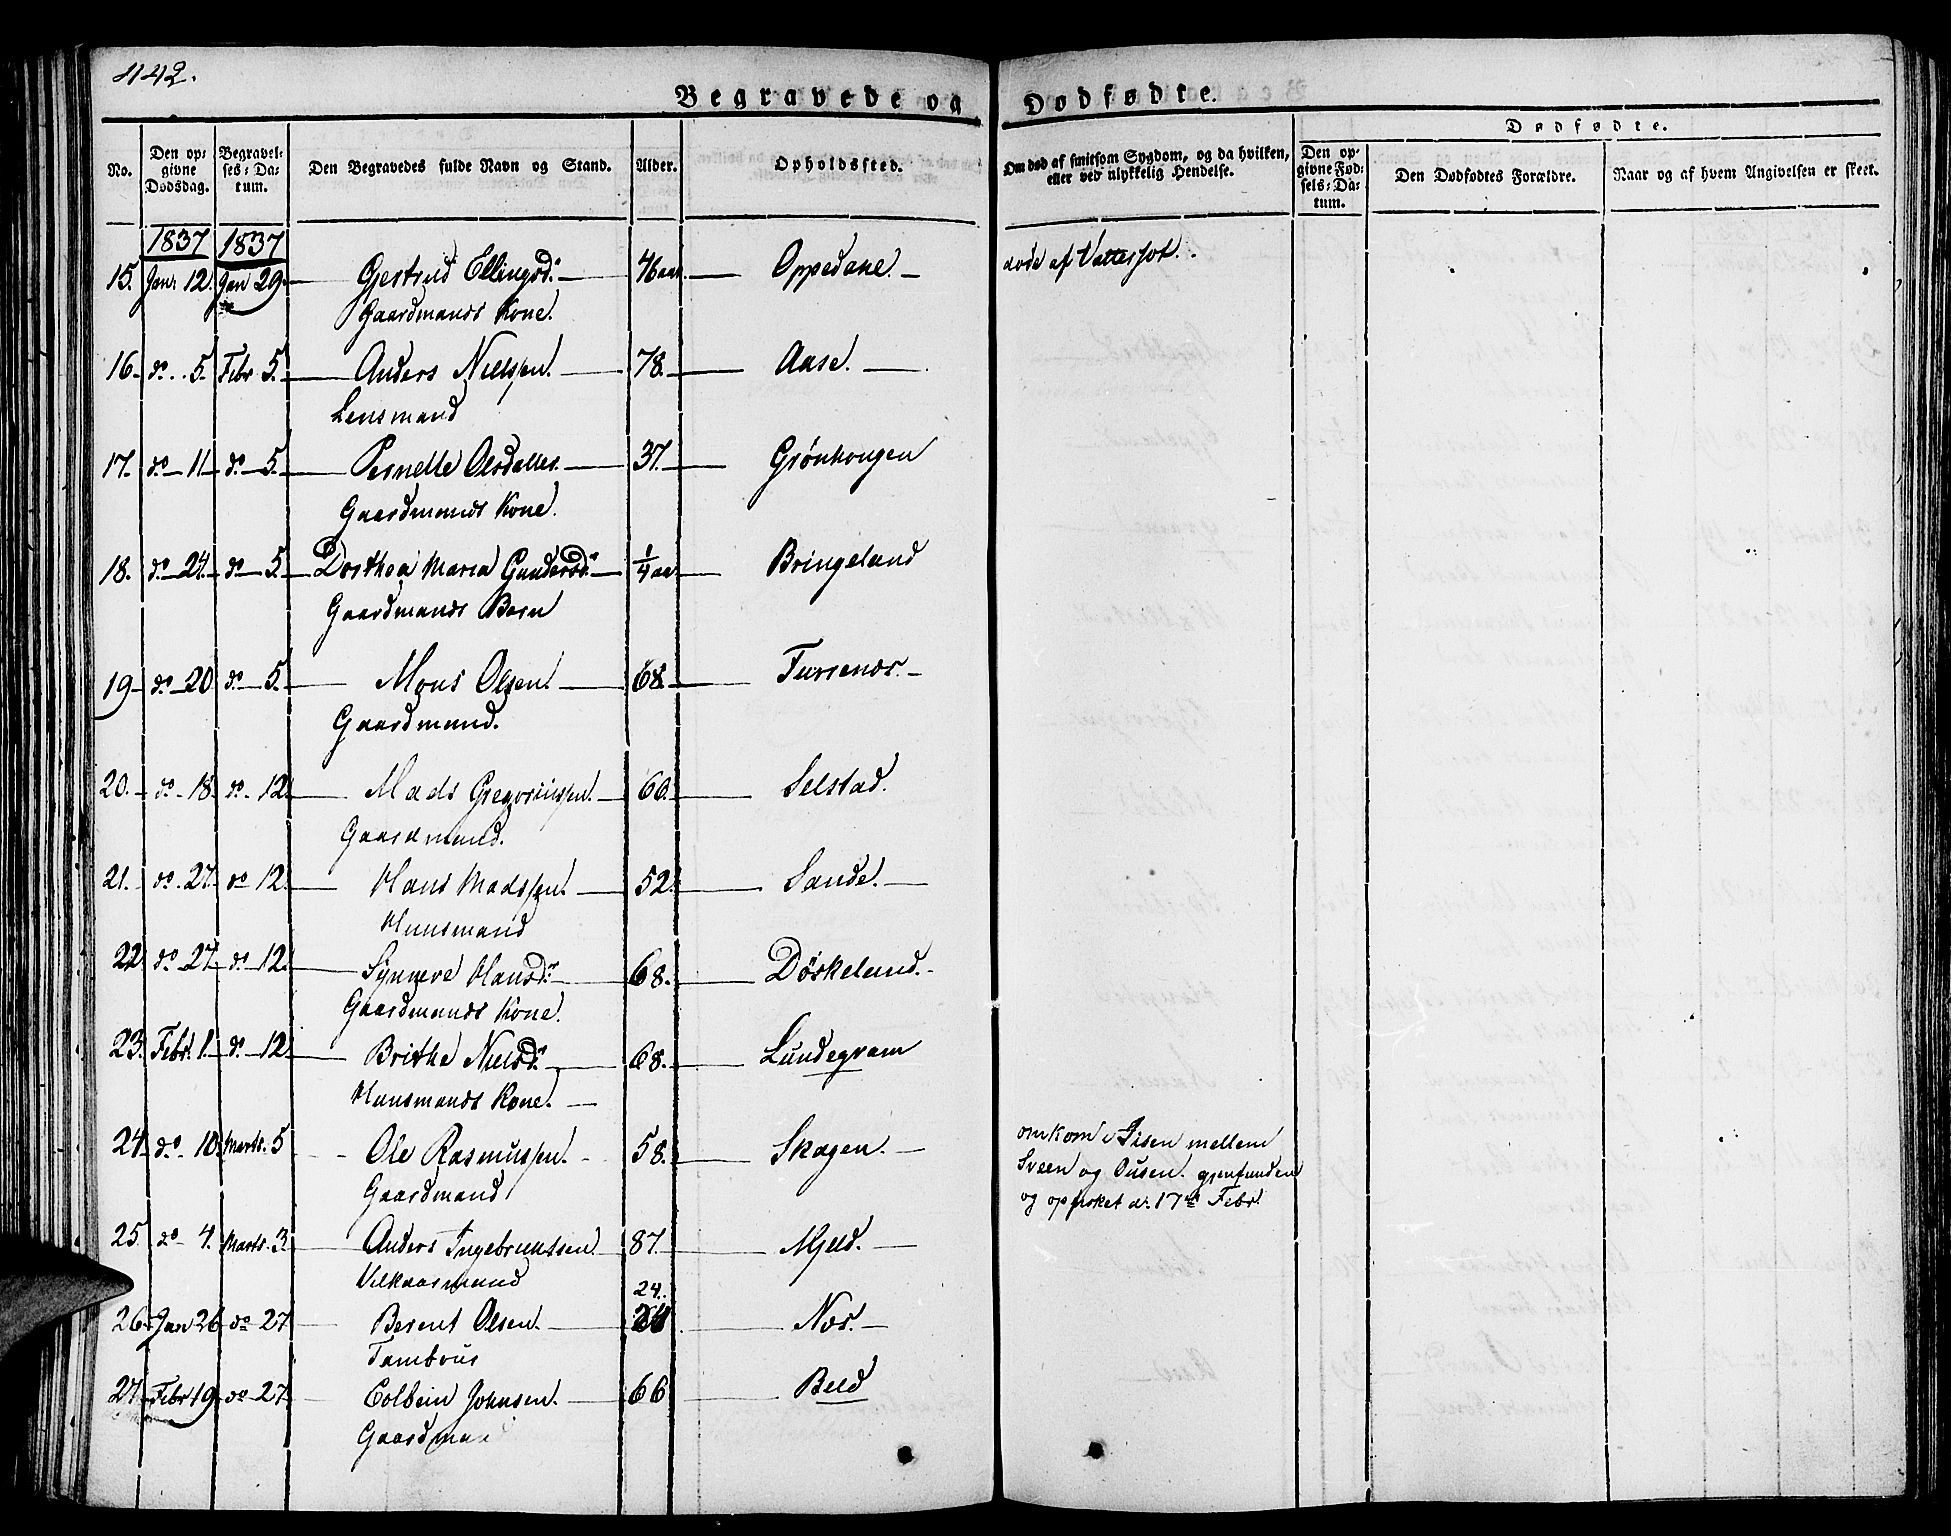 442.
Begravede og Dødfødte.
Dødfødte.
No. Den opgivne Dødsdag. Begravelses-Datum. Den Begravedes fulde Navn og Stand. Alder. Opholdssted. Om død af smitsom Sygdom, og da hvilken, eller ved ulykkelig Hendelse. Den opgivne Fødsels-Datum. Den Dødfødtes Forældre. Naar og af hvem Angivelsen er skeet.
1837 1837
15. Jan: 12. Jan 29. Gjertrud Ellingsd: 46 aar. Oppedahl døde af Vattersot.
Gaardmands Kone.
16. do. 5. Febr 5. Anders Nielssen. 78. Aase.
Lensmand
17. do 11 do 5. Pernelle Olsdatter. 37. Grønhougen
Gaardmands Kone.
18. do 24. do 5. Dorthea Maria Gundersd: 1/4 aar Bringeland
Gaardmands Barn
19 do 20 do 5. Mons Olsen. 68. Furrenæs.
Gaardmand.
20. do 18. do 12. Mads Gregoriussen. 60. Selstad.
Gaardmand.
21. do 27. do 12. Hans Madssen. 52. Sande.
Huusmand
22 do 27 do 12. Synneve Hansd: 68. Døskeland.
Gaardmands Kone.
23. Febr. 1. do 12. Brithe Nielsd: 68. Lundegram
Huusmands Kone.
24. do 10. Marts. 5 Ole Rasmussen. 58. Skogen. omkom i Iisen mellem
Gaardmand Sveen og Ousen. gjenfunden
og opfisket d. 17de Febr
25 do 4. Marts. 3. Anders Ingebrigtsen 87. Mjeld.
Vilkaarsmand
24.
26. Jan 26 do 27 Berent Olsen. Nos.
Tambour
27. Febr 19. do 27. Colbein Johnsen. 66 Beld
Gaardman